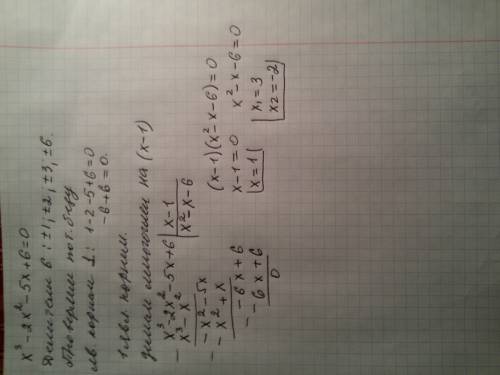 x³ - 2x² - 5x + 6 = 0
Делители 6 : ±1; ±2; ±3; ±6.
Проверим
корнем 1: 1-2-5+6=0
-6+6=0.
1 явл. корнем.
делим многочлен на (x-1)
- x³-2x²-5x+6 | x-1
x³-x² | x²-x-6
- -x²-5x
-x²+x
- -6x+6
-6x+6
0
(x-1)(x²-x-6)=0
x-1=0 x²-x-6=0
x=1 x₁=3
x2=-2